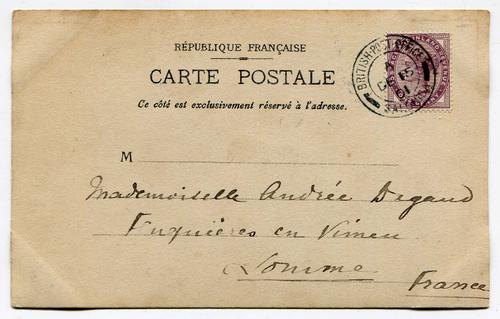 RÉPUBLIQUE FRANÇAISE
CARTE POSTALE
Ce côté est exclusivement réservé à l'adresse.
BRITISH POST OFFICE
M
Mademoiselle Andrée Degaud
Fuquières en Vimeu
Somme
France